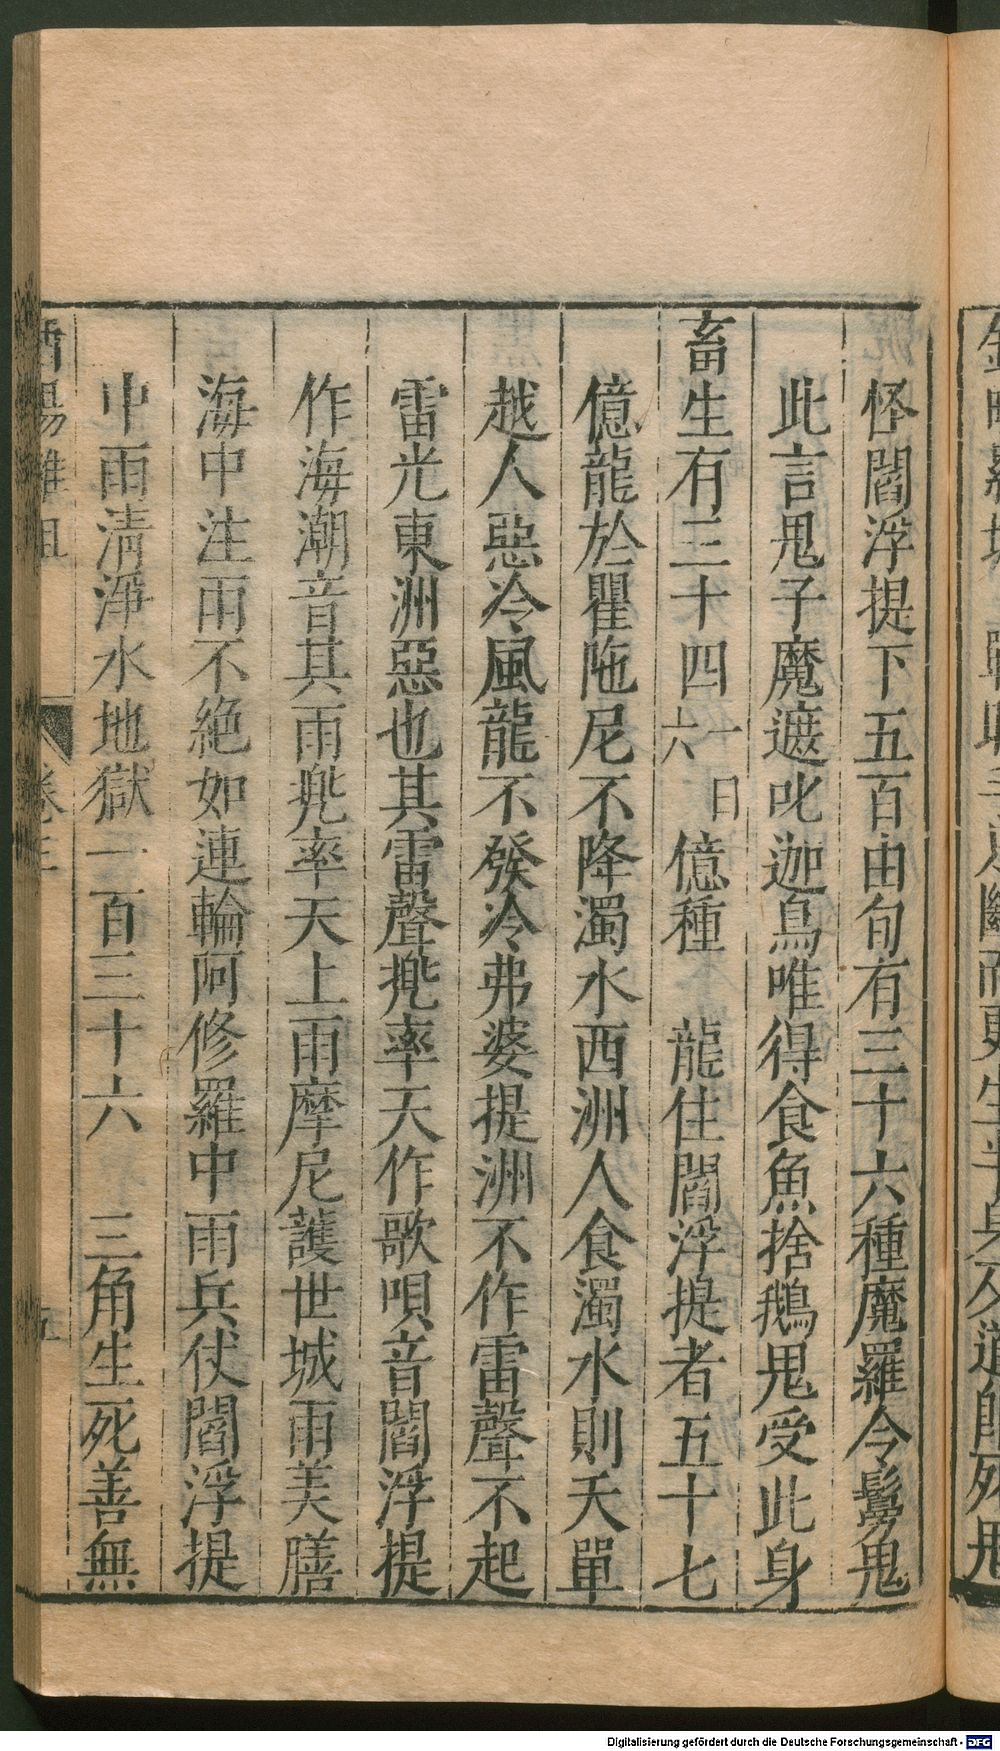 怪閻浮提下五百由旬有三十六種魔羅令鬘鬼
此言鬼子魔遮吒迦鳥唯得食魚捨鵝鬼受此身
畜生有三十四一曰六億種　龍住閻浮提者五十七
億龍於瞿陁尼不降濁水西洲人食濁水則夭單
越人惡冷風龍不發冷弗婆提洲不作雷聲不起
雷光東洲惡也其雷聲兠率天作歌唄音閻浮提
作海潮音其雨兠率天上雨摩尼護世城雨美膳
海中注雨不絶如連輪阿修羅中雨兵仗閻浮提
中雨清淨水地獄一百三十六　三角生死善無
酉陽雜俎
卷三
五
Digitalisierung gefördert durch die Deutsche Forschungsgemeinschaft - DFG